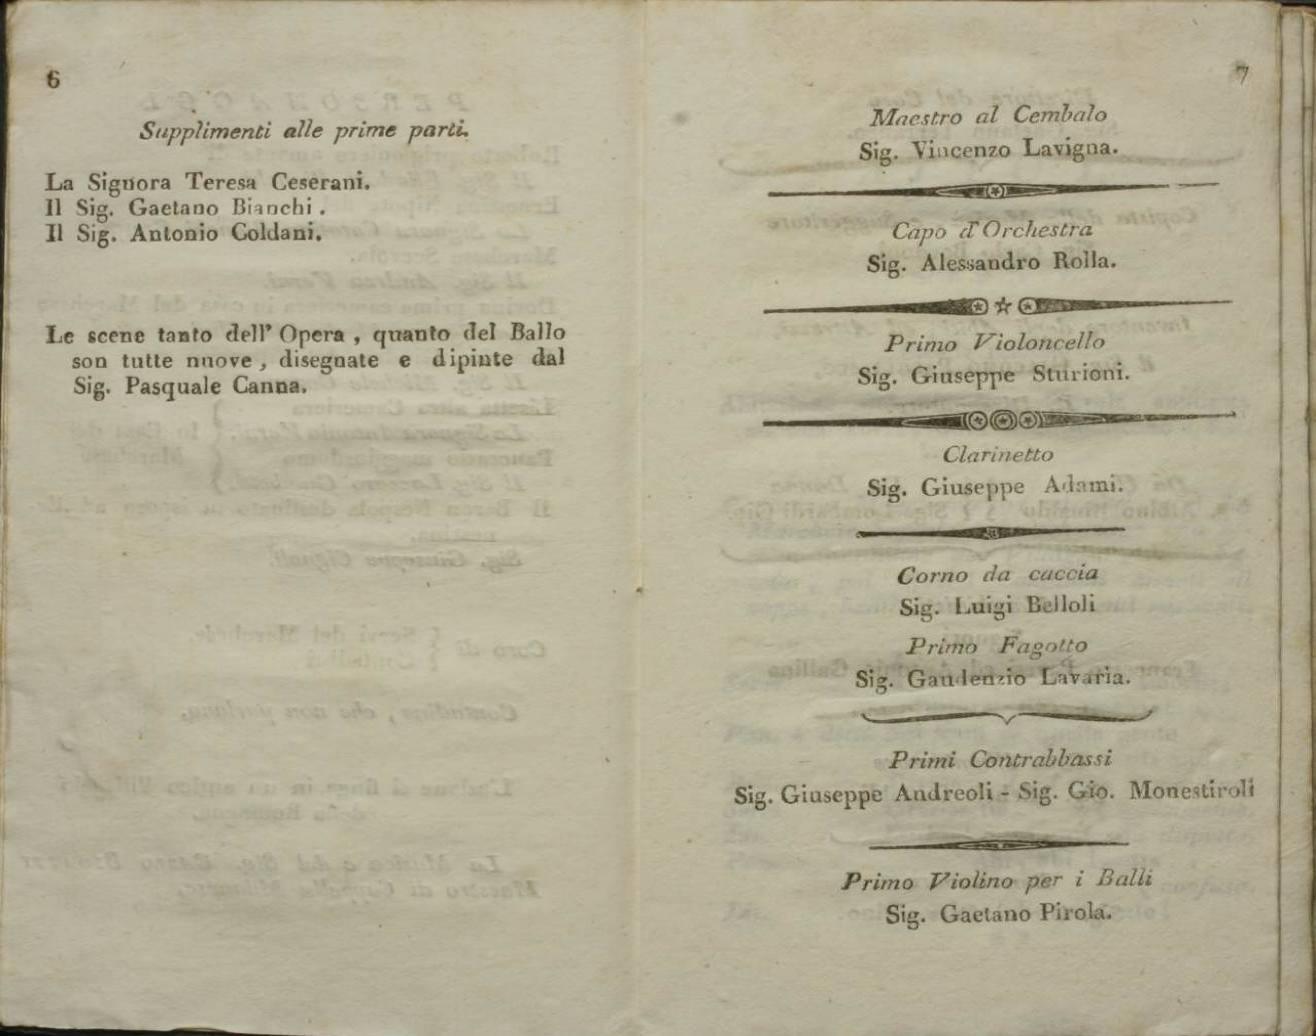 6
Supplimenti alle prime parti.
La Signora Teresa Ceserani.
Il Sig. Gaetano Bianchi.
Il Sig. Antonio Coldani.
Le scene tanto dell' Opera, quanto del Ballo
son tutte nuove, disegnate e dipinte dal
Sig. Pasquale Canna.
7
Maestro al Cembalo
Sig. Vincenzo Lavigna.
Capo d'Orchestra
Sig. Alessandro Rolla.
Primo Violoncello
Sig. Giuseppe Sturioni.
Clarinetto
Sig. Giuseppe Adami.
Corno da caccia
Sig. Luigi Belloli
Primo Fagotto
Sig. Gaudenzio Lavaria.
Primi Contrabbassi
Sig. Giuseppe Andreoli - Sig. Gio. Monestiroli
Primo Violino per i Balli
Sig. Gaetano Pirola.